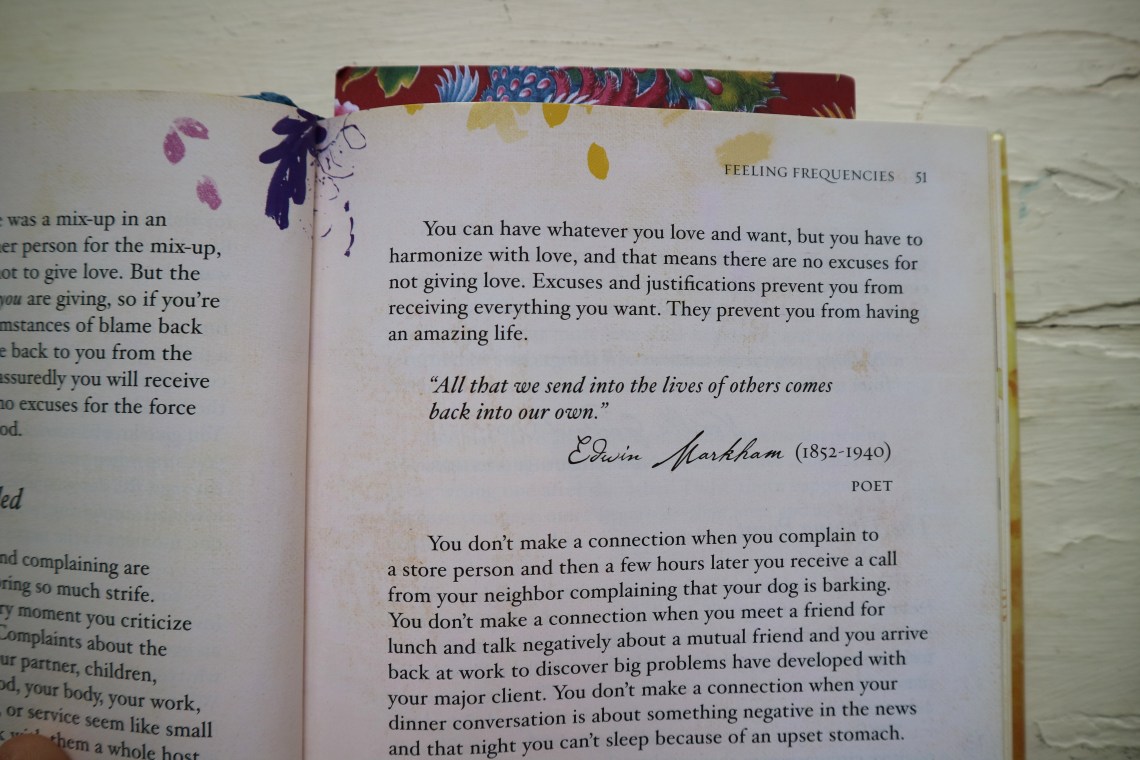 was a mix-up in an
person for the mix-up,
to give love. But the
you are giving, so if you’re
of blame back
back to you from the
assuredly you will receive
no excuses for the force
nd complaining are
so much strife.
moment you criticize
Complaints about the
partner, children,
your body, your work,
or service seem like small
them a whole host
FEELING FREQUENCIES 51
You can have whatever you love and want, but you have to
harmonize with love, and that means there are no excuses for
not giving love. Excuses and justifications prevent you from
receiving everything you want. They prevent you from having
an amazing life.
“All that we send into the lives of others comes
back into our own.”
Edwin Markham (1852-1940)
POET
You don’t make a connection when you complain to
a store person and then a few hours later you receive a call
from your neighbor complaining that your dog is barking.
You don’t make a connection when you meet a friend for
lunch and talk negatively about a mutual friend and you arrive
back at work to discover big problems have developed with
your major client. You don’t make a connection when your
dinner conversation is about something negative in the news
and that night you can’t sleep because of an upset stomach.